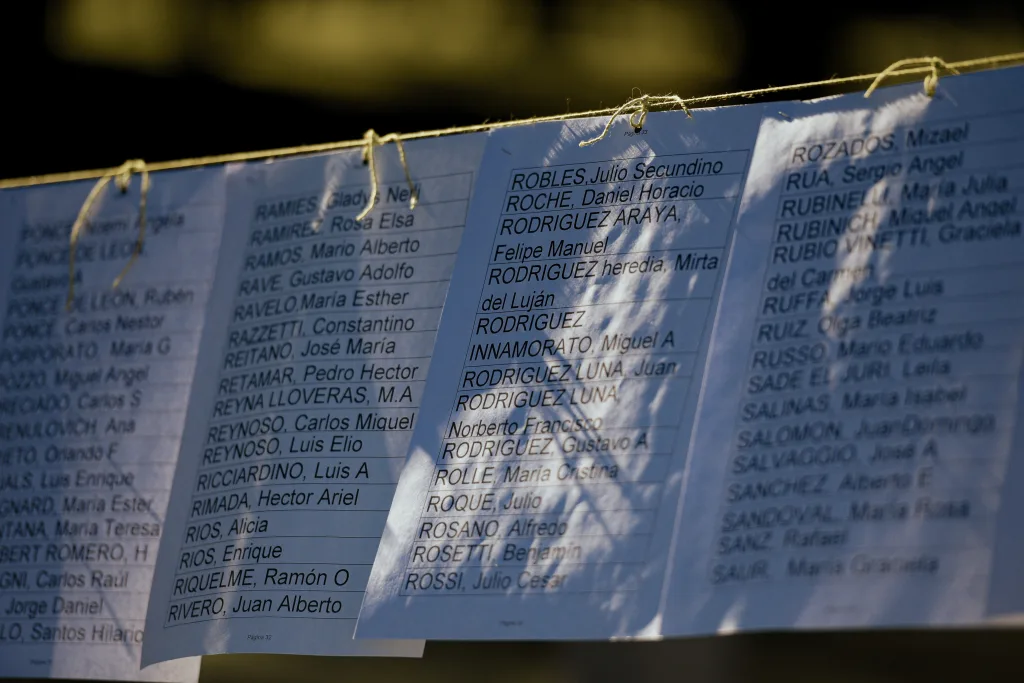 PONCE
PONCE DE LEON
Gustavo
PONCE DE LEON, Rubén
PONCE, Carlos Nestor
PORPORATO, María G
POZZO, Miguel Angel
PRECIADO, Carlos S
Ana
Orlando F
Luis Enrique
María Ester
María Teresa
ROMERO, H
Carlos Raúl
Jorge Daniel
Santos Hilario
RAMIES, Gladys Nelli
RAMIREZ, Rosa Elsa
RAMOS, Mario Alberto
RAVE, Gustavo Adolfo
RAVELO,María Esther
RAZZETTI, Constantino
REITANO, José María
RETAMAR, Pedro Hector
REYNA LLOVERAS, M.A
REYNOSO, Carlos Miguel
REYNOSO, Luis Elio
RICCIARDINO, Luis A
RIMADA, Hector Ariel
RIOS, Alicia
RIOS, Enrique
RIQUELME, Ramón O
RIVERO, Juan Alberto
Página 32
ROBLES,Julio Secundino
ROCHE, Daniel Horacio
RODRIGUEZ ARAYA,
Felipe Manuel
RODRIGUEZ heredia, Mirta
del Luján
RODRIGUEZ
INNAMORATO, Miguel A
RODRIGUEZ LUNA, Juan
RODRIGUEZ LUNA,
Norberto Francisco
RODRIGUEZ, Gustavo A
ROLLE, María Cristina
ROQUE, Julio
ROSANO, Alfredo
ROSETTI, Benjamín
ROSSI, Julio Cesar
ROZADOS, Mizael
RUA, Sergio Angel
RUBINELLI, María Julia
RUBINICH, Miquel Angel
RUBIO VINETTI, Graciela
del Carmen
RUFFA, Jorge Luis
RUIZ, Olga Beatriz
RUSSO, Mario Eduardo
SADE EL JURI, Leila
SALINAS, María Isabel
SALOMON, JuanDomingo
SALVAGGIO, José A
SANCHEZ, Alberto E
SANDOVAL, María Rosa
SANZ, Rafael
SAUR, María Graciela